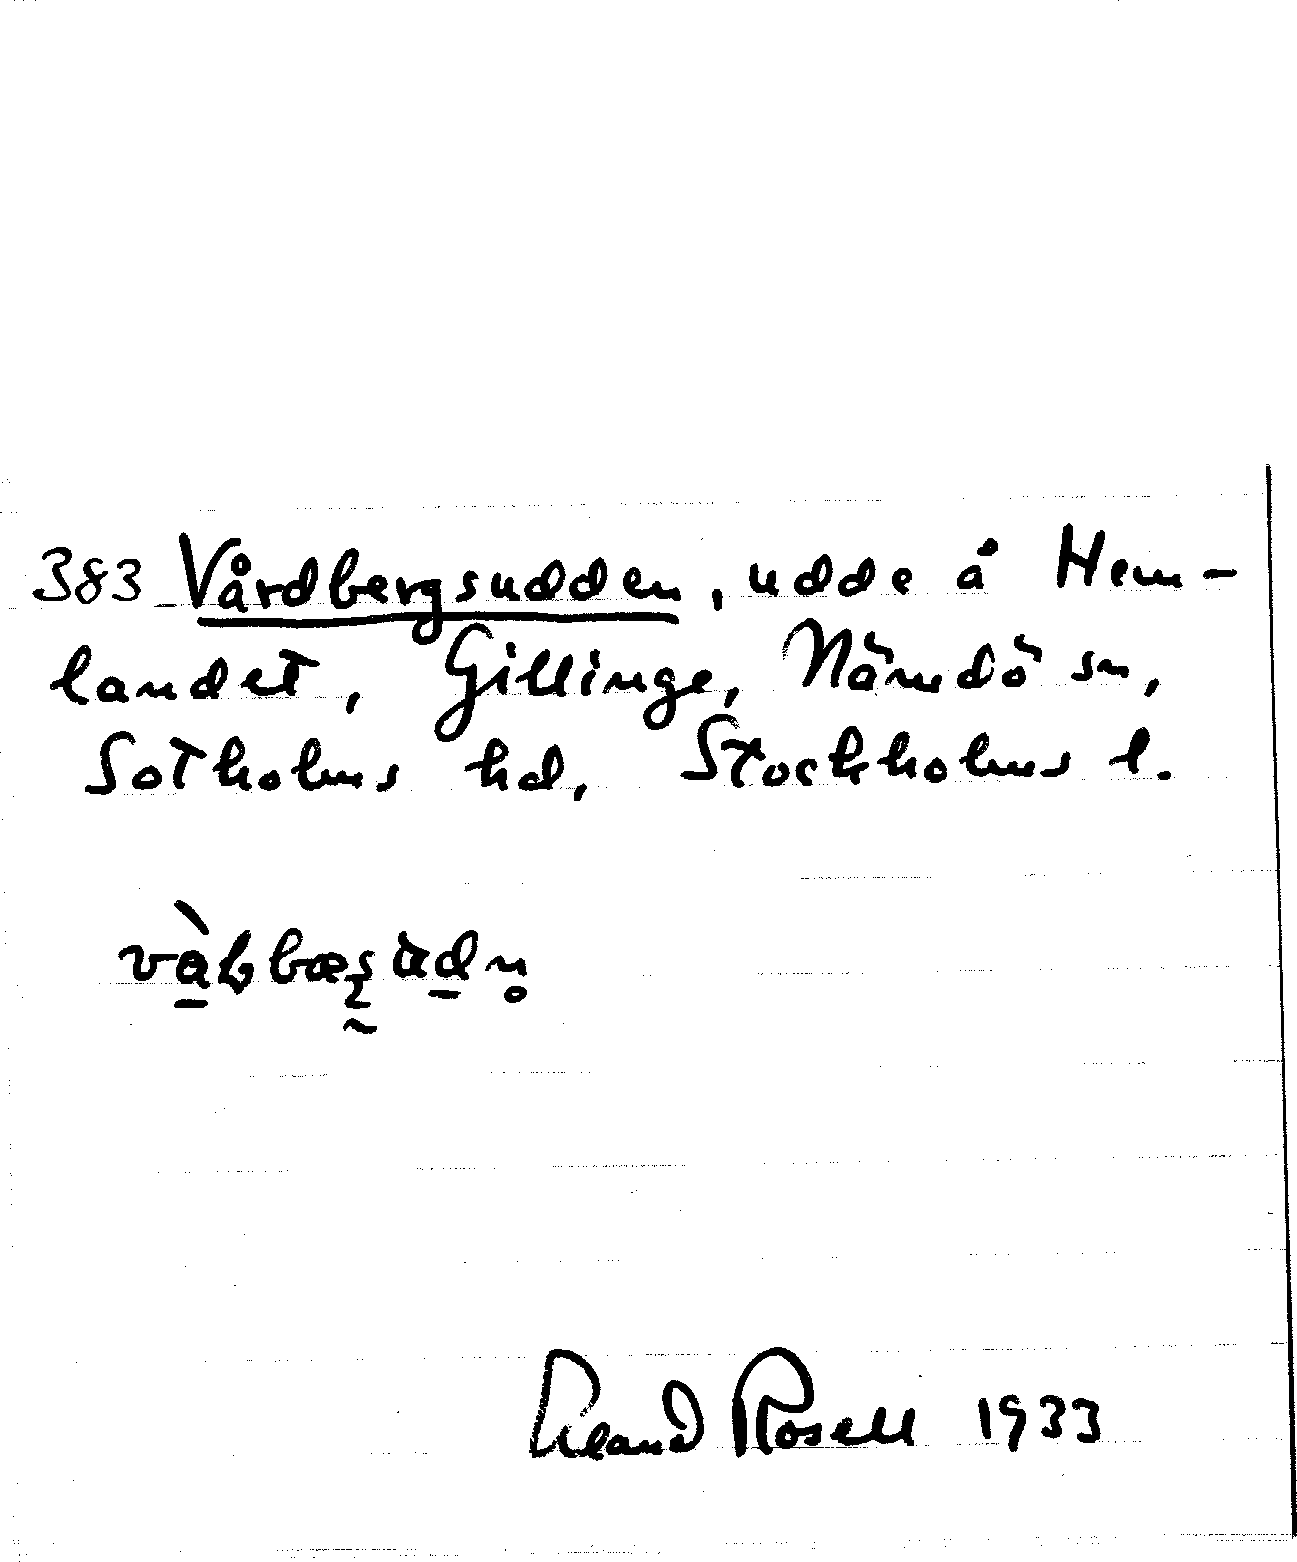 383 Vårdbergsudden, udde å Hem-
landet, Gillinge, Nämdö sn,
Sotholms hd, Stockholms l.
Rosell 1933